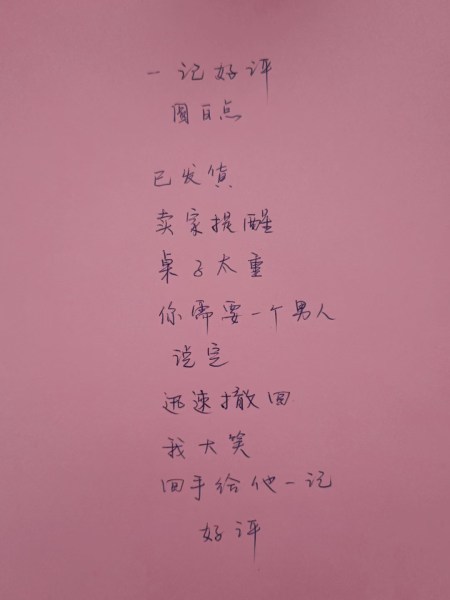 一记好评
圆白点
已发货
卖家提醒
桌子太重
你需要一个男人
说完
迅速撤回
我大笑
回手给他一记
好评